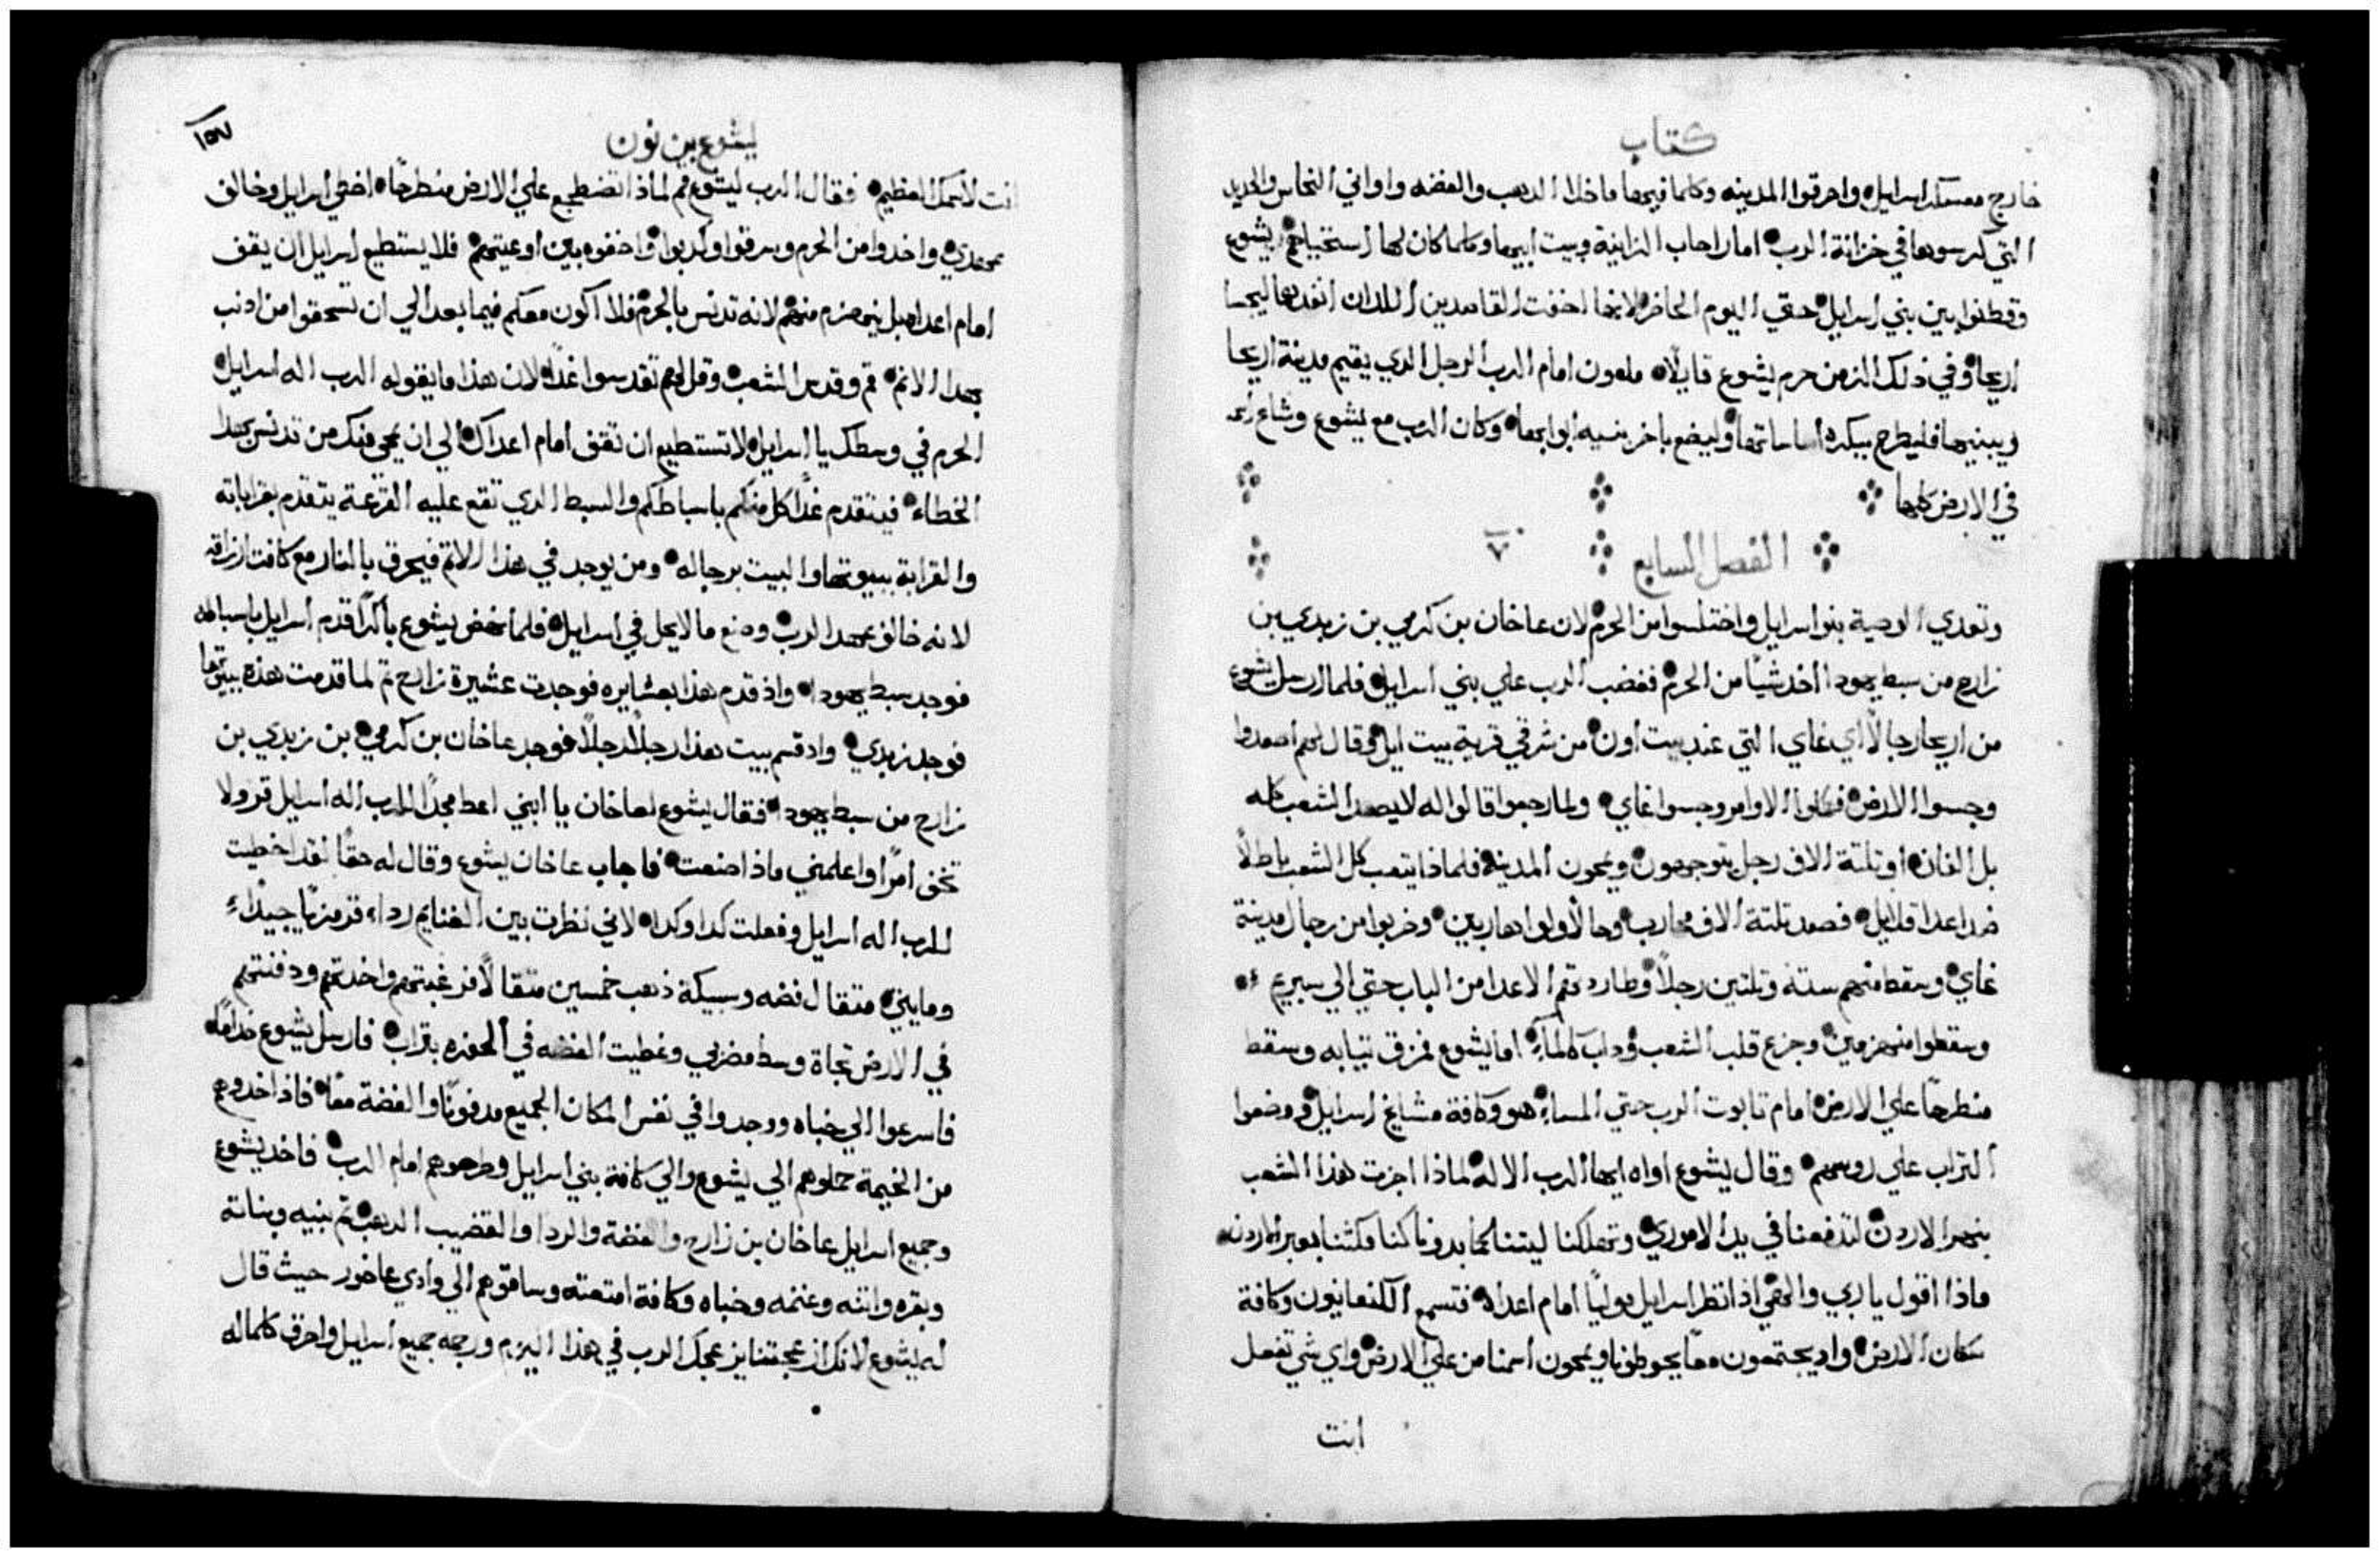 كتاب
خارج معسكر اسرايل واحرقوا المدينه وكلما فيها ما خلا الدهب والفضه واواني النحاس والحديد
التي كرسوها في خزانة الرب اما راحاب الزانية وبيت ابيها وكلما كان لها استحياهم يشوع
وقطنوا بين بني اسرايل حتي اليوم الحاضر لانها اخفت القاصدين اللدان انفدهما ليجسا
اريحا وفي ذلك الزمن حرم يشوع قايلاً ملعون امام الرب الرجل الدي يقيم مدينة اريحا
ويبنيها فليطرح ببكره اساساتها وليضع باخر بنيه ابوابها وكان الرب مع يشوع وشاع
في الارض كلها
الفصل السابع ٧
وتعدي الوصية بنو اسرايل واختلسوا من الحرم لان عاخان بن كرمي بن زبدي بن
زارح من سبط يهودا اخد شيًا من الحرم فغضب الرب علي بني اسرايل فلما ارسل يشوع
من اريحا رجالًا اي غاي التي عند بيت اون من شرقي قرية بيت ايل وقال لهم اصعدوا
وجسوا الارض فكملوا الاوامر وجسوا غاي ولما رجعوا قالوا له لا يصعد الشعب كله
بل الفان او تلتة الاف رجل يتوجهون ويمحون المدينة فلماذا يتعب كل الشعب باطلاً
ضد اعدا قلايل فصعد تلتة الاف محارب وحالاً ولوا هاربين وضربوا من رجال مدينة
غاي وسقط منهم ستة وتلتين رجلاً وطاردتهم الاعدا من الباب حتي الي سبريم
وسقطوا منهزمين وجزع قلب الشعب وداب كالماء اما يشوع فمزق تيابه وسقط
منطرحاً علي الارض امام تابوت الرب حتي المساء هو وكافة مشايخ اسرايل ووضعوا
التراب علي روسهم وقال يشوع اواه ايها الرب الاله لماذا اجزت هذا الشعب
بنهر الاردن لتدفعنا في يد الاموري وتهلكنا ليتنا كما بدونا كنا مكثنا بعبر الاردن
ماذا اقول يا ربي والهي اذ انظر اسرايل موليًا امام اعداه فتسمع الكنعانيون وكافة
سكان الارض واد يجتمعون معًا يحوطونا ويمحون اسمنا من علي الارض واي شي تفعل
انت
يشوع بن نون
١٥٧
انت لاسمك العظيم فقال الرب ليشوع قم لماذا تضطجع علي الارض منطرحًا اخطي اسرايل وخالف
عهدي واخدوا من الحرم وسرقوا وكدبوا واخفوه بين اوعيتهم فلا يستطيع اسرايل ان يقف
امام اعداه بل ينهزم منهم لانه تدنس بالحرم فلا اكون معكم فيما بعد الي ان تسحقوا من ادنب
بهدا الاتم قم وقدس الشعب وقل لهم تقدسوا غدًا لان هذا ما يقوله الرب اله اسرايل
الحرم في وسطك يا اسرايل لا تستطيع ان تقف امام اعداك الي ان يمحي منك من تدنس بهدا
الخطاء فيتقدم غدًا كل منكم باسباطكم والسبط الدي تقع عليه القرعة يتقدم بقراباته
والقرابة ببيوتها والبيت برجاله ومن يوجد في هذا الاتم فيحرق بالنار مع كافت ارزاقه
لانه خالف عهد الرب وصنع ما لا يحل في اسرايل فلما نهض يشوع باكرًا قدم اسرايل باسباطه
فوجد سبط يهودا واذ قدم هذا بعشايره فوجدت عشيرة زارح تم لما قدمت هذه ببيوتها
فوجد زبدي واد قسم بيت هذا رجلاً رجلاً فوجد عاخان بن كرمي بن زبدي بن
زارح من سبط يهودا فقال يشوع لعاخان يا ابني اعط مجدًا للرب اله اسرايل قر ولا
تخفي امرًا واعلمني ماذا صنعت فاجاب عاخان يشوع وقال له حقًا لقد اخطيت
للرب اله اسرايل وفعلت كدا وكدا لاني نظرت بين الغنايم رداء قرمزيًا جيدًا
ومايتي متقال فضه وسبيكة ذهب خمسين متقالًا فرغبتهم واخدتهم ودفنتهم
في الارض تجاة وسط مضربي وغطيت الفضه في الحفره بتراب فارسل يشوع خدامه
فاسرعوا الي خباه ووجدوا في نفس المكان الجميع مدفونًا والفضة معًا فاذ اخدوهم
من الخيمة حملوهم الي يشوع والي كافة بني اسرايل وطرحوهم امام الرب فاخد يشوع
وجميع اسرايل عاخان بن زارح والفضة والردا والقضيب الدهب تم بنيه وبناته
وبقره واتنه وغنمه وخباه وكافة امتعته وساقوهم الي وادي عاخور حيث قال
له يشوع لانك ازعجتنا يزعجك الرب في هذا اليوم ورجمه جميع اسرايل واحرق كلما له